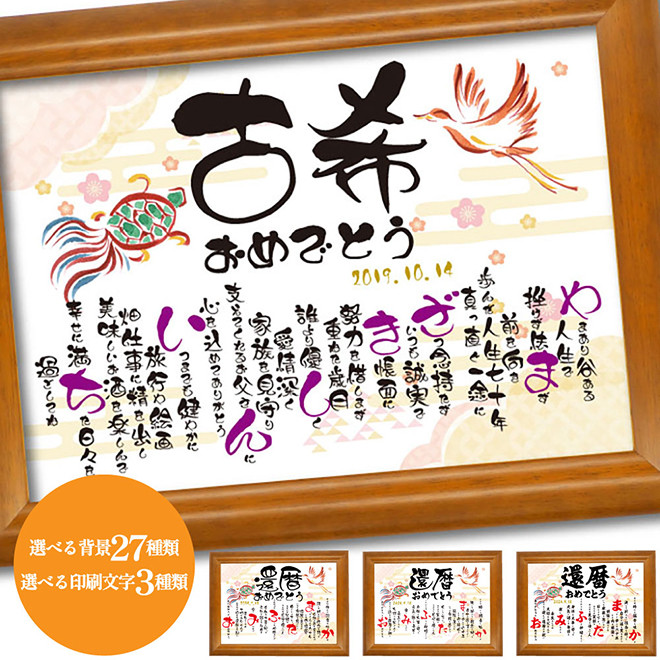 古希
おめでとう
2019.10.14
やまあり谷ある
人生を
挫けず休まず
前を向き
歩んだ人生七十年
真っ直ぐ一途に
ざつ念持たず
いつも誠実で
き帳面に
努力を惜しまず
重ねた歳月
誰より優しく
愛情深く
家族を見守り
支えてくれるお父さんに
心を込めてありがとう
いつまでも健やかに
旅行や絵画
畑仕事に精を出し
美味しいお酒を楽しんで
幸せに満ちた日々を
過ごしてね
選べる背景27種類
選べる印刷文字3種類
還暦
おめでとう
還暦
おめでとう
還暦
おめでとう